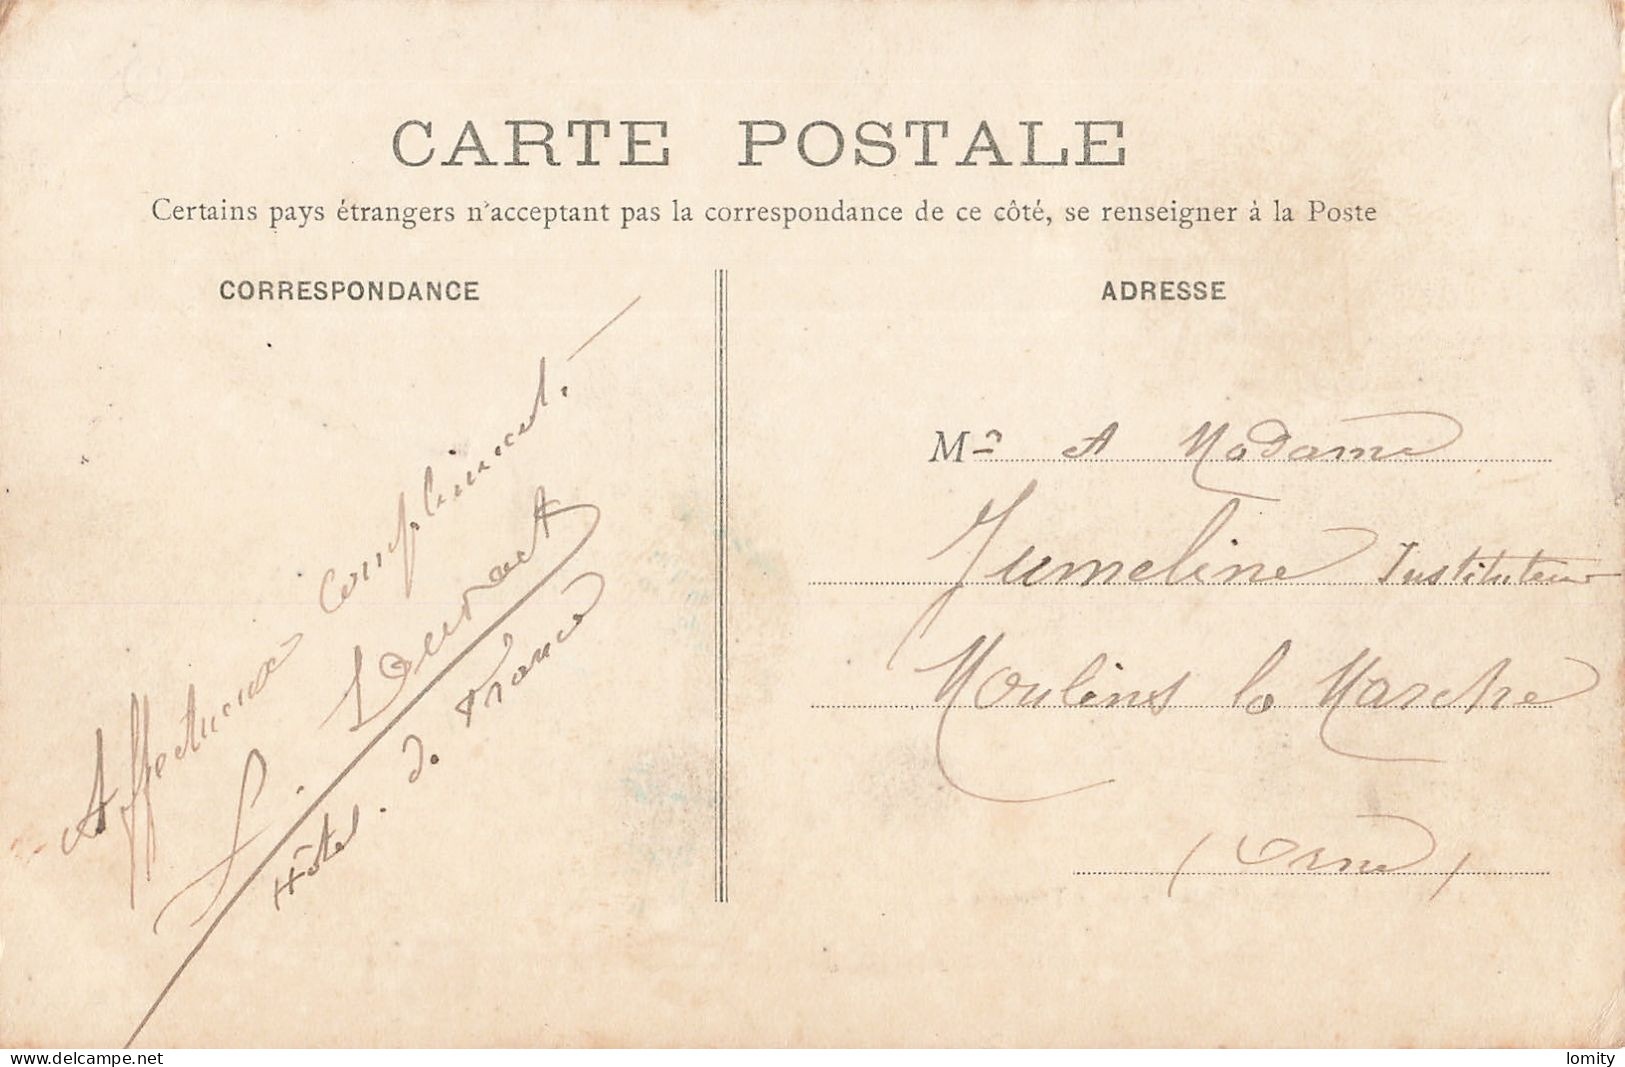 CARTE POSTALE
Certains pays étrangers n'acceptant pas la correspondance de ce côté, se renseigner à la Poste
CORRESPONDANCE
Affectueux compliment.
Hôtel de France
ADRESSE
Mr et Madame
Jumeline Instituteur
Moulins la Marche
(Orne)
www.delcampe.net
lomity